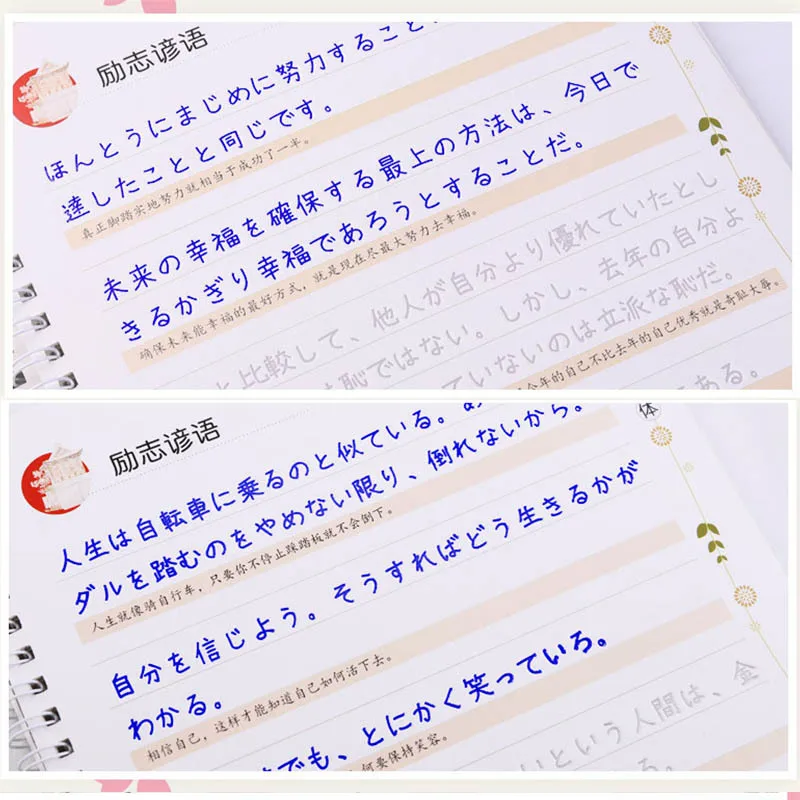 励志谚语
ほんとうにまじめに努力すること
達したことと同じです。
真正脚踏实地努力就相当于成功了一半。
未来の幸福を確保する最上の方法は、今日で
きるかぎり幸福であろうとすることだ。
确保未来能幸福的最好方式，就是现在尽最大努力去幸福。
と比較して、他人が自分より優れていたとし
恥ではない。しかし、去年の自分よ
ていないのは立派な恥だ。
今年的自己不比去年的自己优秀就是奇耻大辱。
ある。
励志谚语
体
人生は自転車に乗るのと似ている。
ダルを踏むのをやめない限り、倒れないから。
人生就像骑自行车，只要你不停止踩踏板就不会倒下。
自分を信じよう。そうすればどう生きるかが
わかる。
相信自己，这样才能知道自己如何活下去。
でも、とにかく笑っていろ。
何要保持笑容。
いという人間は、金
る。